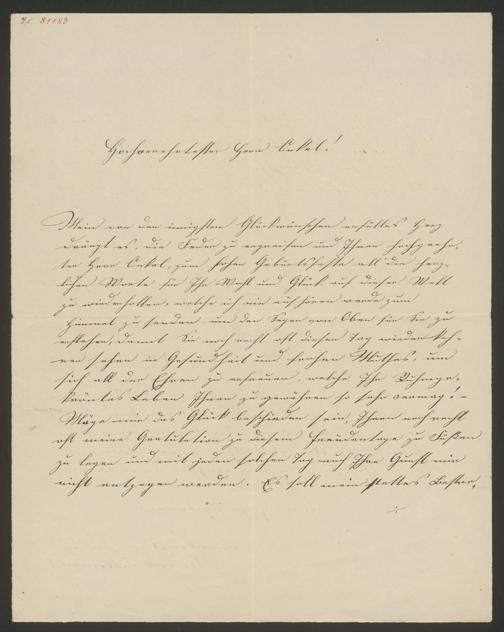 Jr. 81183
Hochverehrtester Herr Onkel!
Mein von den innigsten Glückwünschen erfülltes Herz
drängt es, die Feder zu ergreifen und Ihnen hochgeehr-
ter Herr Onkel, zum hohen Geburtsfeste, all die herz-
lichen Worte für Ihr Wohl und Glück auf dieser Welt
zu wiederhollen, welche ich nie aufhören werde zum
Himmel zu senden, um den Segen von Oben für Sie zu
erflehen, damit Sie noch recht oft diesen Tag wiederkeh-
ren sehen in Gesundheit und frohen Muthes, um
sich all der Ehren zu erfreuen, welche Ihr Ruhmge-
kröntes Leben Ihnen zu gewähren so sehr vermag! -
Möge mir das Glück beschieden sein, Ihnen noch recht
oft meine Gratulation zu diesem Freudentage zu Füßen
zu legen und mit jedem solchen Tag auch Ihre Gunst mir
nicht entzogen werden. Es soll mein stettes Bestre-